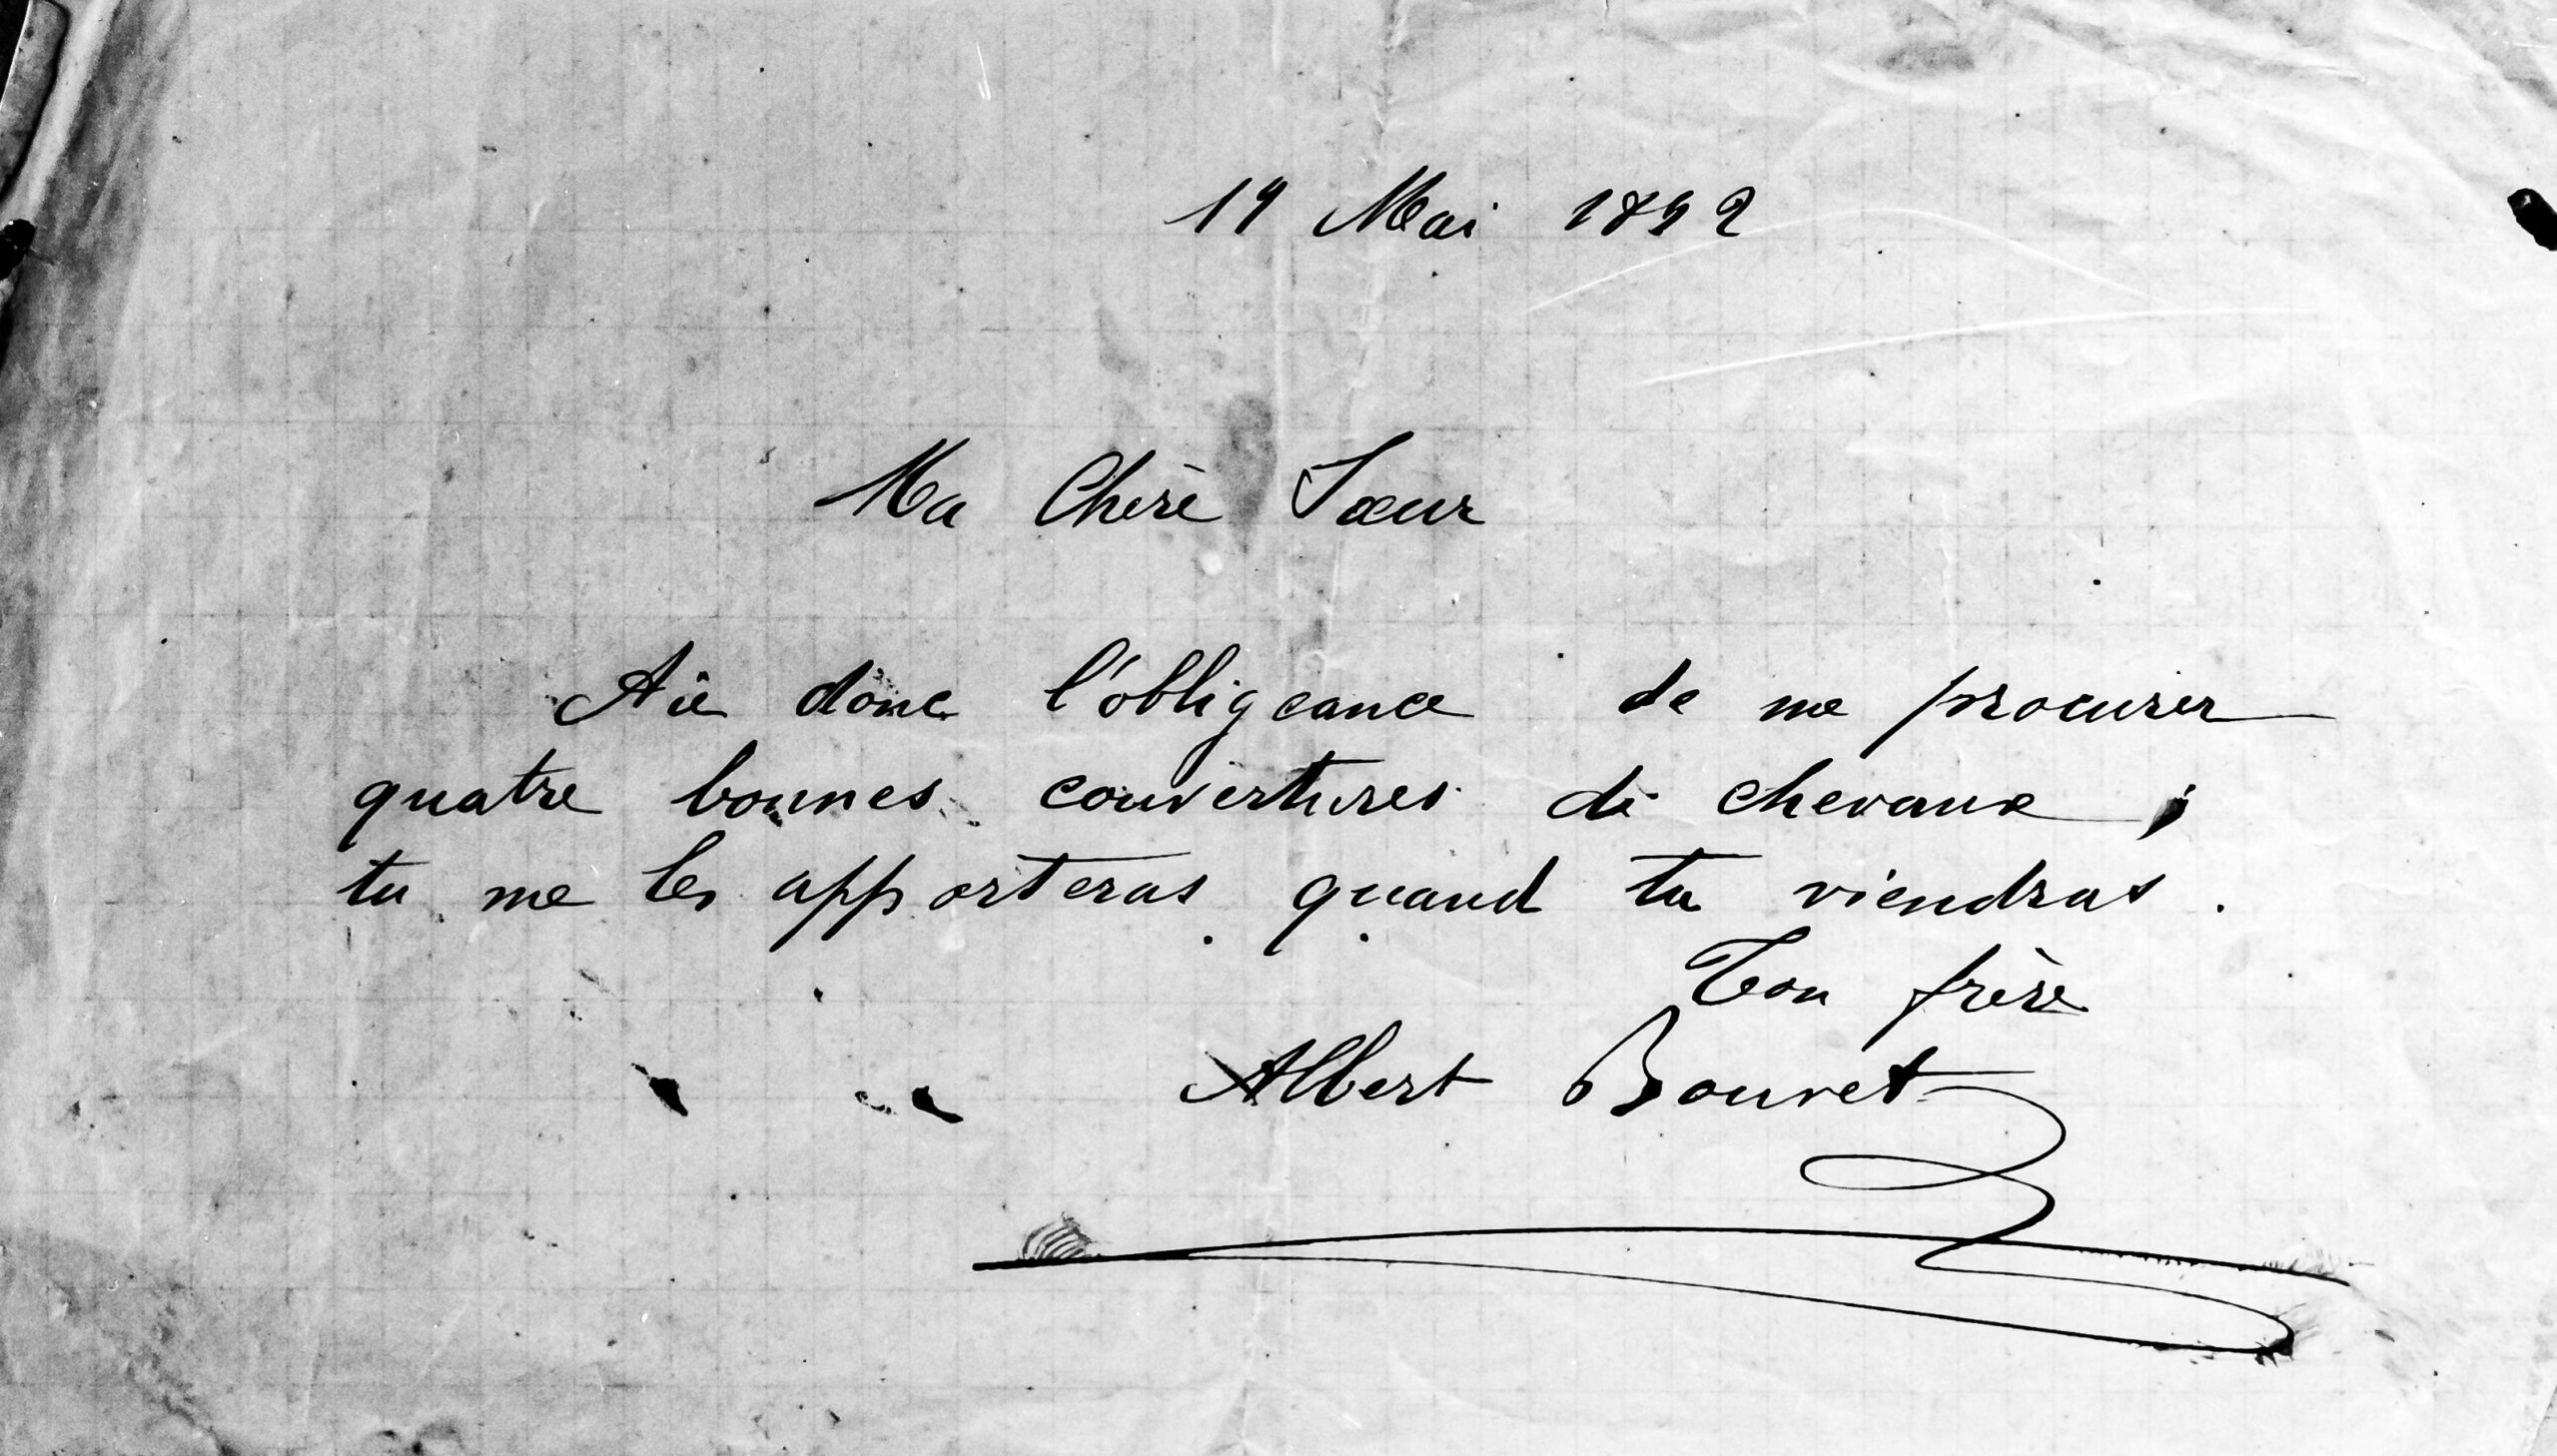 19 Mai 1892
Ma Chère Sœur
Aie donc l'obligeance de me procurer
quatre bonnes couvertures de chevaux ;
tu me les apporteras quand tu viendras .
Ton frère
Albert Bouvet